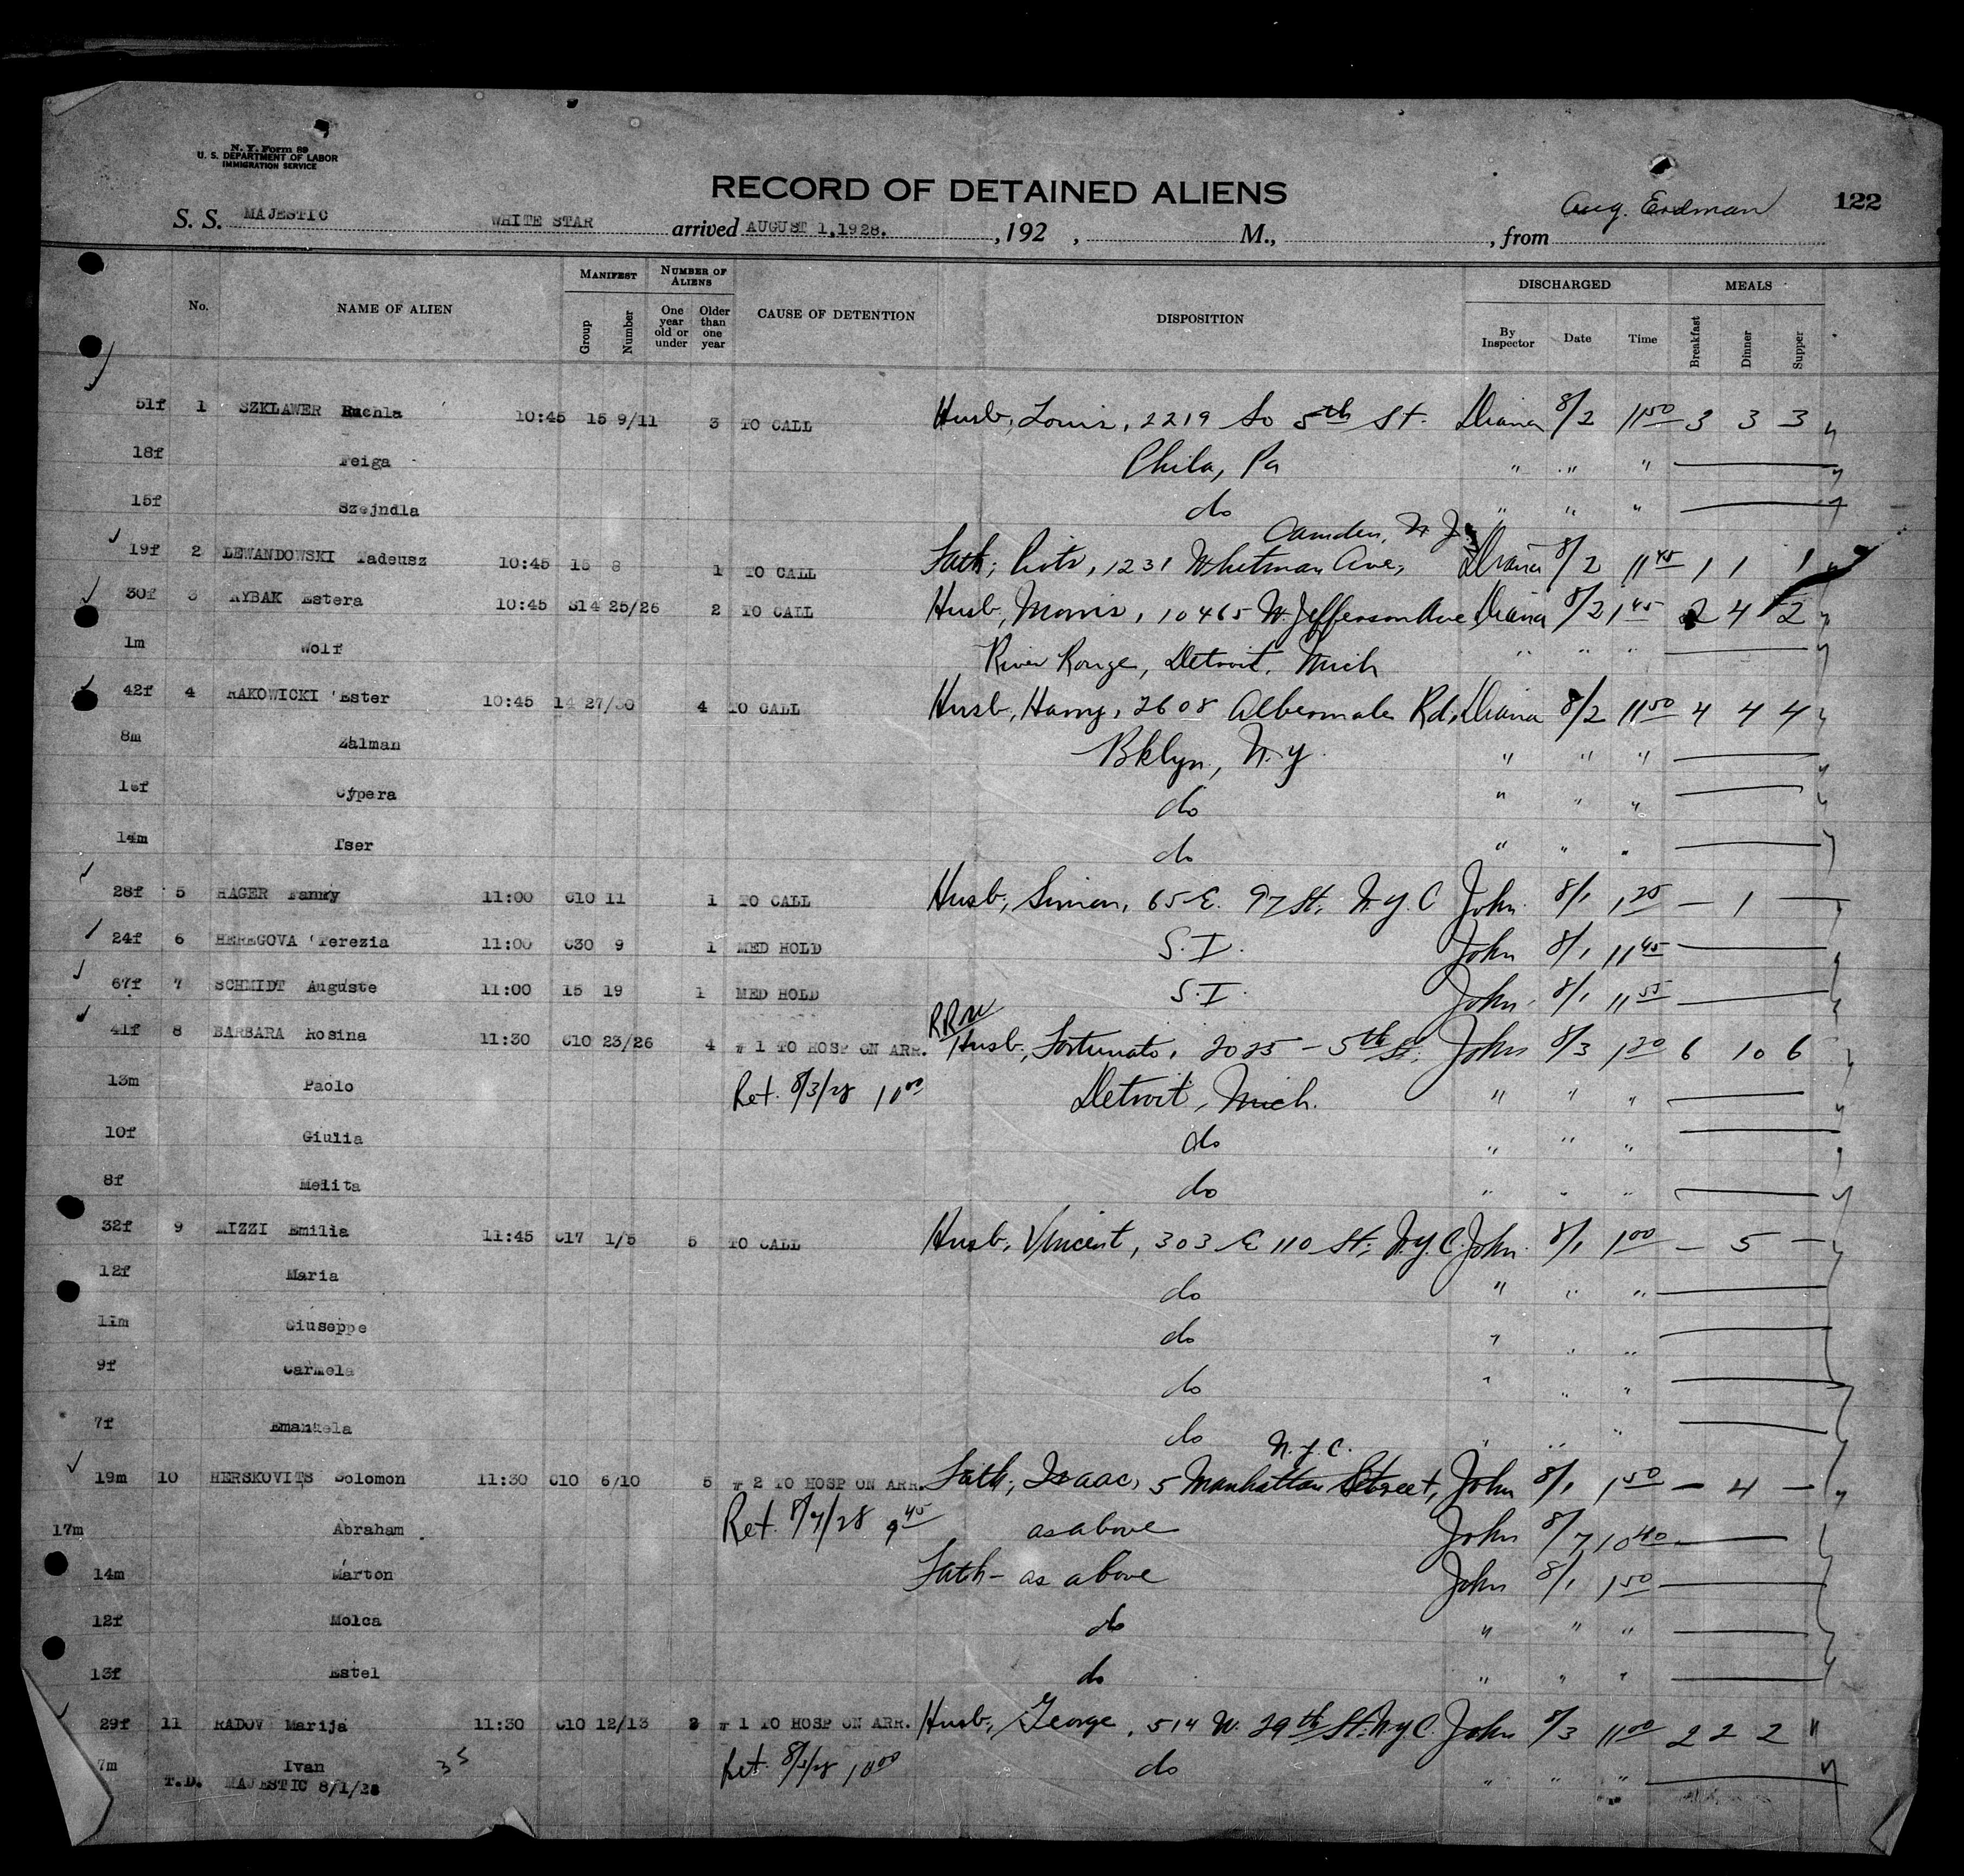 N. Y. Form 89
U. S. DEPARTMENT OF LABOR
IMMIGRATION SERVICE
RECORD OF DETAINED ALIENS
Aug. Erdman 122
S. S. MAJESTIC WHITE STAR arrived AUGUST 1, 1928. , 192 , M., , from
MANIFEST NUMBER OF ALIENS DISCHARGED MEALS
No. NAME OF ALIEN Group Number One year old or under Older than one year CAUSE OF DETENTION DISPOSITION By Inspector Date Time Breakfast Dinner Supper
51f 1 SZKLAWER Ruchla 10:45 15 9/11 3 TO CALL Husb, Louis, 2219 So 5th St. Diana 8/2 11 50 3 3 3
18f Feiga Chila, Pa " " "
15f Szejndla do " " "
Camden, N J
19f 2 LEWANDOWSKI Tadeusz 10:45 15 8 1 TO CALL Fath; Piotr, 1231 Whitman Ave, Diana 8/2 11 45 1 1 1
30f 3 RYBAK Estera 10:45 S14 25/26 2 TO CALL Husb, Morris, 10465 W. Jefferson Ave Diana 8/2 1 45 2 4 2
1m Wolf River Rouge, Detroit, Mich " " "
42f 4 RAKOWICKI Ester 10:45 14 27/30 4 TO CALL Husb, Harry, 2608 Albermale Rd, Diana 8/2 11 50 4 4 4
8m Zalman Bklyn, N.Y. " " "
16f Cypera do " " "
14m Iser do " " "
28f 5 HAGER Fanny 11:00 C10 11 1 TO CALL Husb; Simon, 65 E. 97 St, N.Y.C John 8/1 1 25 — 1 —
24f 6 HEREGOVA Terezia 11:00 C30 9 1 MED HOLD S.I. John 8/1 11 45
67f 7 SCHMIDT Auguste 11:00 15 19 1 MED HOLD S.I. John 8/1 11 55
RRW
41f 8 BARBARA Rosina 11:30 C10 23/26 4 # 1 TO HOSP ON ARR. Husb, Fortunato, 2025 - 5th St, John 8/3 1 20 6 10 6
13m Paolo Ret. 8/3/28 10 00 Detroit, Mich. " " "
10f Giulia do " " "
8f Melita do " " "
32f 9 MIZZI Emilia 11:45 C17 1/5 5 TO CALL Husb, Vincent, 303 E 110 St; N.Y.C. John 8/1 1 00 — 5 —
12f Maria do " " "
11m Giuseppe do " " "
9f Carmela do " " "
7f Emanuela do " " "
N.Y.C.
19m 10 HERSKOVITS Solomon 11:30 C10 6/10 5 # 2 TO HOSP ON ARR. Fath; Isaac, 5 Manhattan Street, John 8/1 1 50 — 4 —
17m Abraham Ret. 8/7/28 9 45 as above John 8/7 10 40
14m Marton Fath - as above John 8/1 1 50
12f Molca do " " "
13f Estel do " " "
29f 11 RADOV Marija 11:30 C10 12/13 2 # 1 TO HOSP ON ARR. Husb, George, 514 W. 29th St. N.Y.C. John 8/3 11 00 2 2 2
7m Ivan 35 Ret. 8/3/28 10 00 do " " "
T.D. MAJESTIC 8/1/28